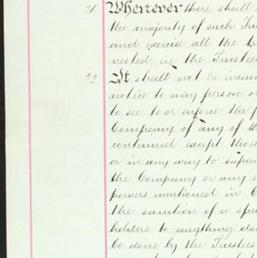 21. Whenever there shall
the majority of such Trus
and exercise all the
vested in the Trustees
22 It shall not be incum
notice to any person or
to see to or enforce the p
Company of any of the
contained except those
or in any way to
the Company or any
powers mentioned in C
the sanction of a spec
holders to anything do
be done by the Trustees